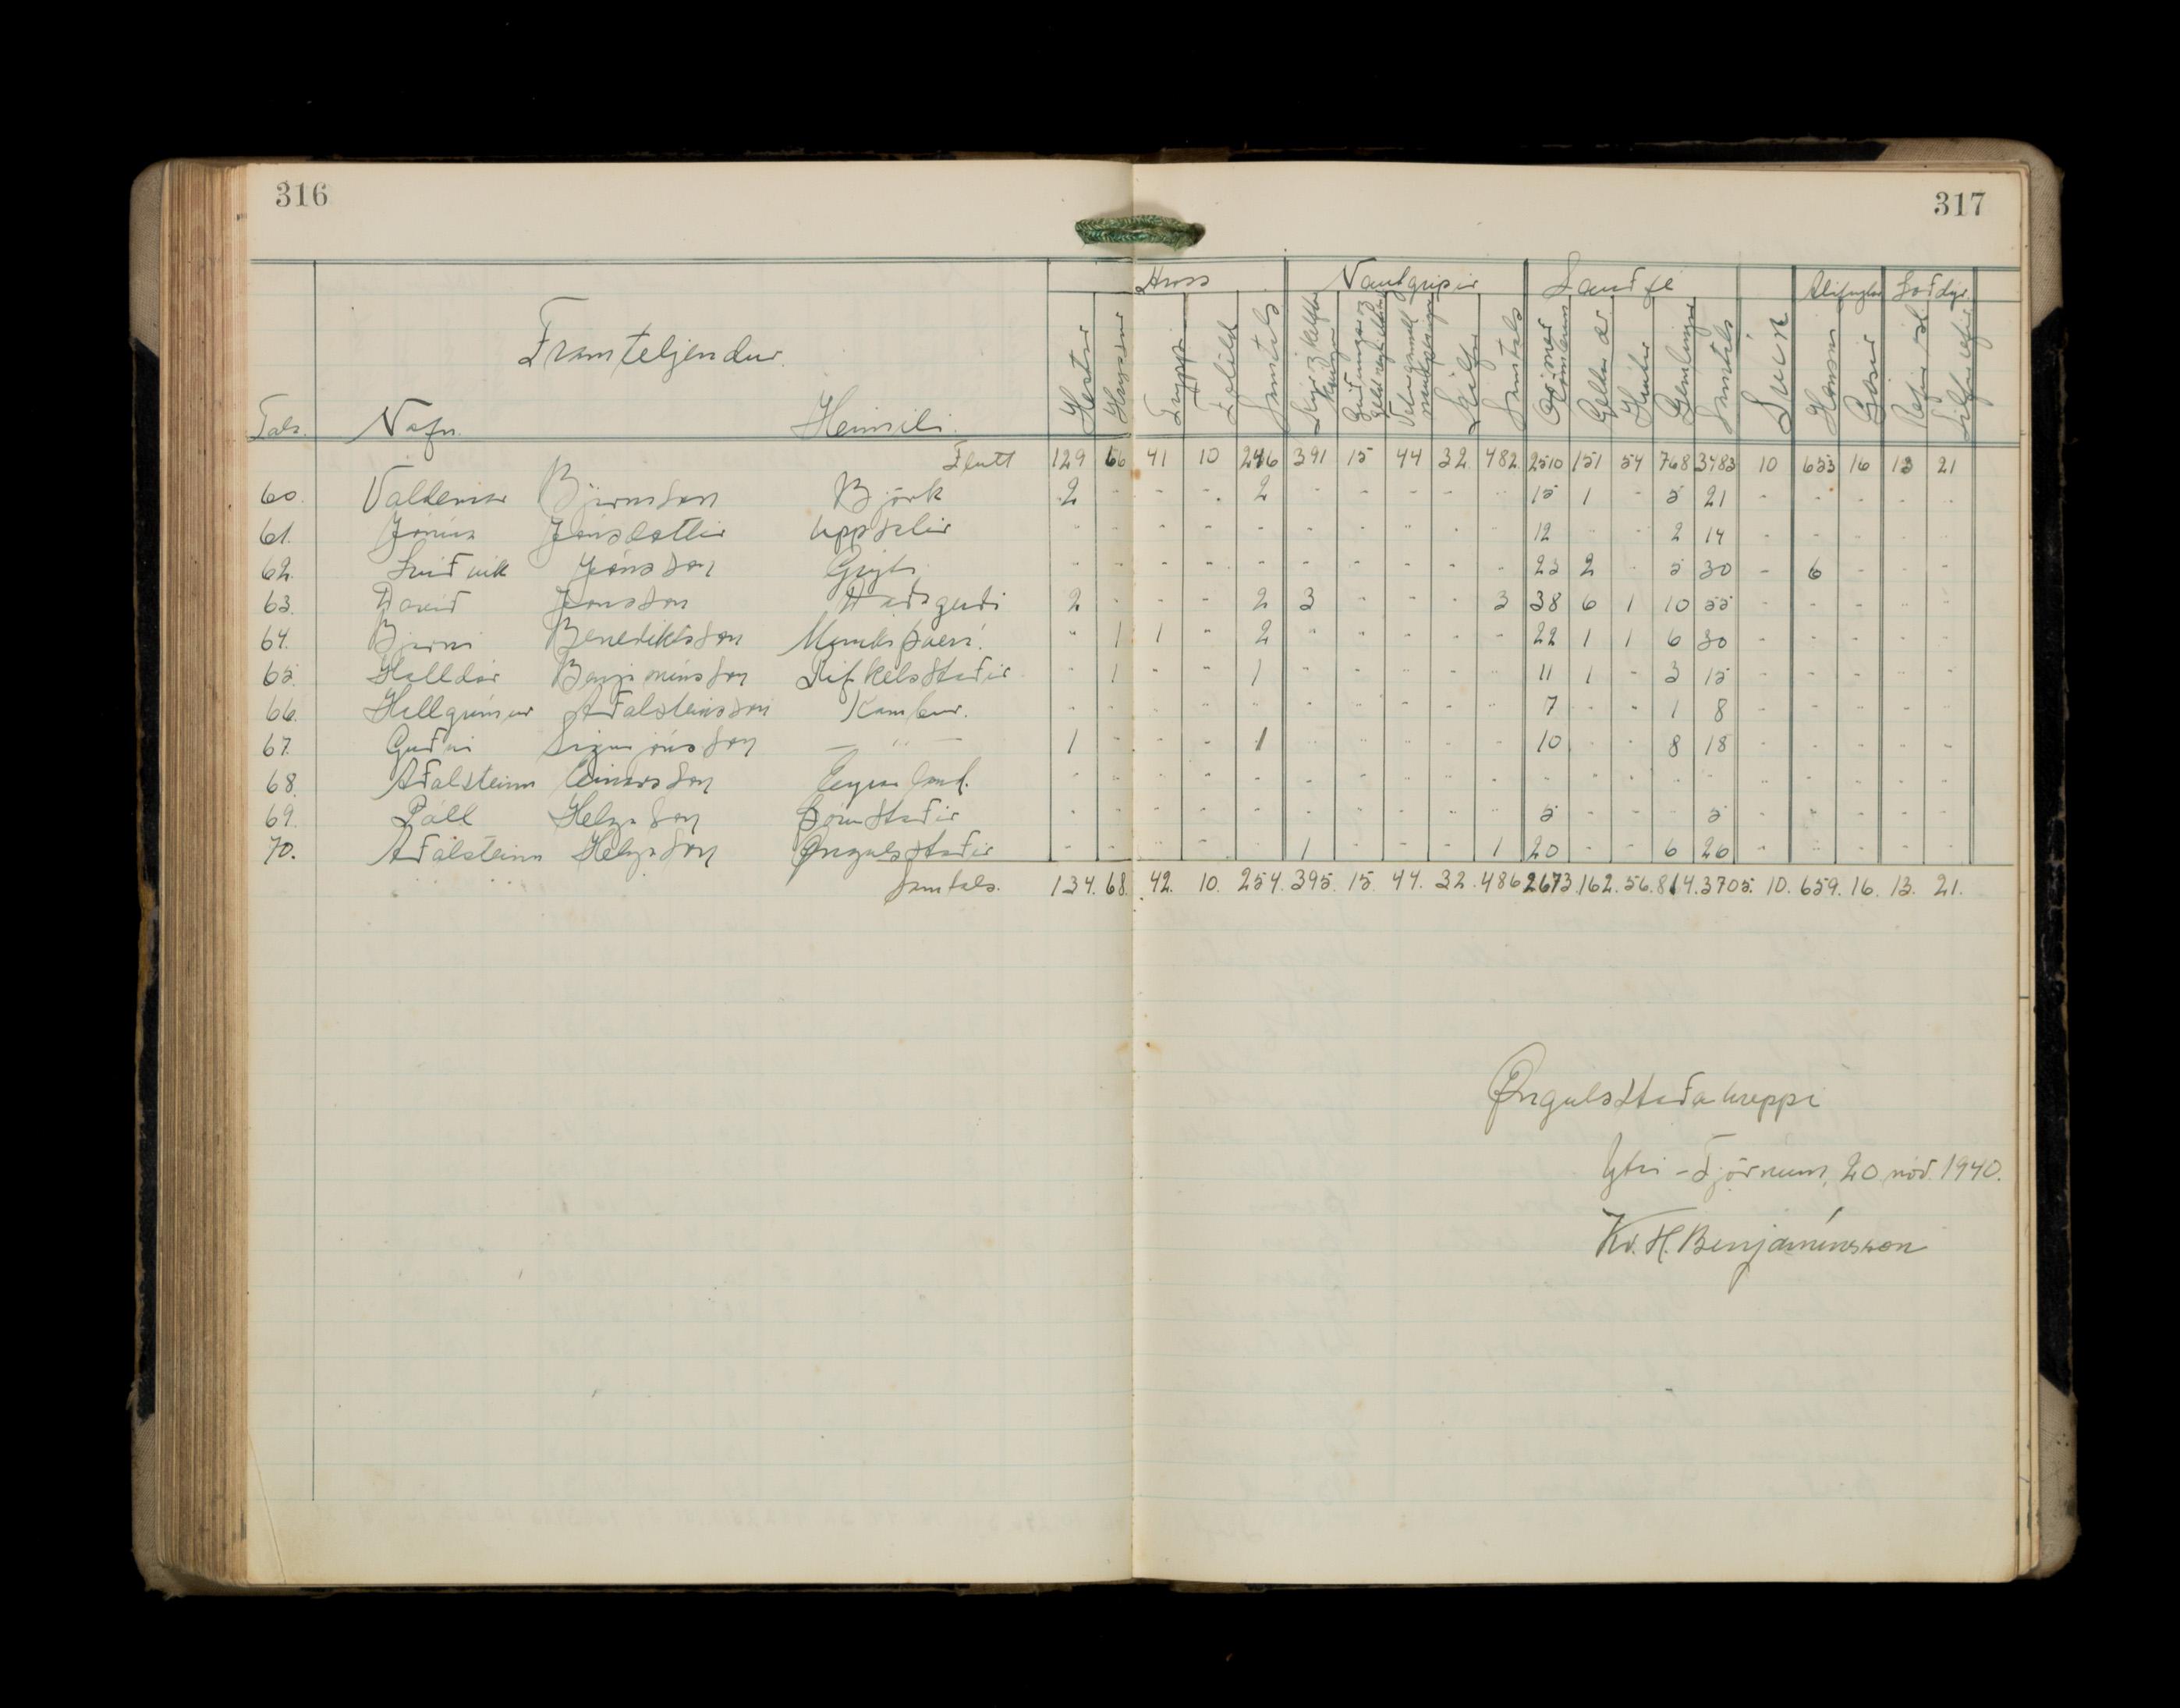 316
317
Hross Nautgripir Sauðfé Alifuglar Loðdýr
Framteljendur
Tala. Nafn. Heimili. Hestar Hryssur Tryppi Folöld Samtals Kýr og kelfdar kvígur Geldneyti Veturgamall nautpeningur Kálfar Samtals Ær með lömbum Geldar ær Hrútar Gemlingar Samtals Svín Hænsni Gæsir Refir Silfurrefir
Flutt 129 66 41 10 246 391 15 44 32 482 2510 151 54 768 3483 10 653 16 13 21
60. Valdemar Björnsson Björk 2 - - - 2 - - - - - 15 1 - 5 21 - - - - -
61. Jónína Jónsdóttir Uppsalir - - - - - - - - - - 12 - - 2 14 - - - - -
62. Lúðvík Jónsson Grýta - - - - - - - - - - 23 2 - 5 30 - 6 - - -
63. Davíð Jónsson Háðsgerði 2 - - - 2 3 - - - 3 38 6 1 10 55 - - - - -
64. Bjarni Benediktsson Munkaþverá. - 1 1 - 2 - - - - - 22 1 1 6 30 - - - - -
65. Halldór Benjamínsson Rifkelsstaðir - 1 - - 1 - - - - - 11 1 - 3 15 - - - - -
66. Hallgrímur Aðalsteinsson Kambur. - - - - - - - - - - 7 - - 1 8 - - - - -
67. Guðni Sigurjónsson — " — 1 - - - 1 - - - - - 10 - - 8 18 - - - - -
68. Aðalsteinn Einarsson Eyrarland. - - - - - - - - - - - - - - - - - - - -
69. Páll Helgason Þórustaðir - - - - - - - - - - 5 - - - 5 - - - - -
70. Aðalsteinn Helgason Öngulsstaðir - - - - - 1 - - - 1 20 - - 6 26 - - - - -
Samtals. 134. 68. 42. 10. 254. 395. 15. 44. 32. 486 2673. 162. 56. 814. 3705. 10. 659. 16. 13. 21.
Öngulsstaðahreppi
Ytri-Tjörnum, 20 nóv. 1940.
Kr. H. Benjamínsson